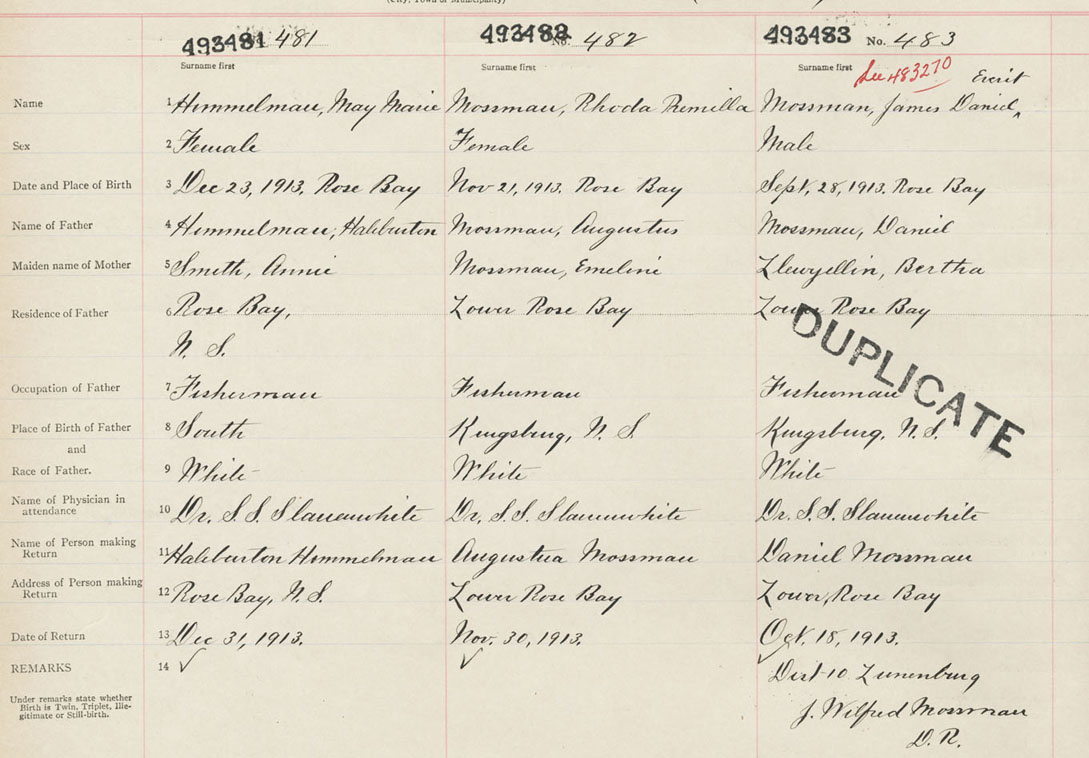 (City, Town or Municipality)
493481 481
493482 No. 482
493483 No. 483
Surname first
Surname first
Surname first See 483270
Everit
Name 1 Himmelman, May Marie Mossman, Rhoda Remilla Mossman, James Daniel ‸
Sex 2 Female Female Male
Date and Place of Birth 3 Dec 23, 1913, Rose Bay Nov 21, 1913. Rose Bay Sept. 28, 1913. Rose Bay
Name of Father 4 Himmelman, Haliburton Mossman, Augustus Mossman, Daniel
Maiden name of Mother 5 Smith, Annie Mossman, Emeline Llewyellin, Bertha
Residence of Father 6 Rose Bay, Lower Rose Bay Lower Rose Bay
N. S.
DUPLICATE
Occupation of Father 7 Fisherman Fisherman Fisherman
Place of Birth of Father 8 South Kingsburg, N. S. Kingsburg, N. S.
and
Race of Father. 9 White White White
Name of Physician in
attendance 10 Dr. S. S. Slauenwhite Dr. S. S. Slauenwhite Dr. S. S. Slauenwhite
Name of Person making
Return 11 Haliburton Himmelman Augustua Mossman Daniel Mossman
Address of Person making
Return 12 Rose Bay, N. S. Lower Rose Bay Lower, Rose Bay
Date of Return 13 Dec 31, 1913. Nov. 30, 1913. Oct. 18, 1913.
REMARKS 14 ✓ ✓ ✓
Dist 10 Lunenburg
Under remarks state whether
Birth is Twin, Triplet, Ille-
gitimate or Still-birth.
J. Wilfred Mossman
D. R.